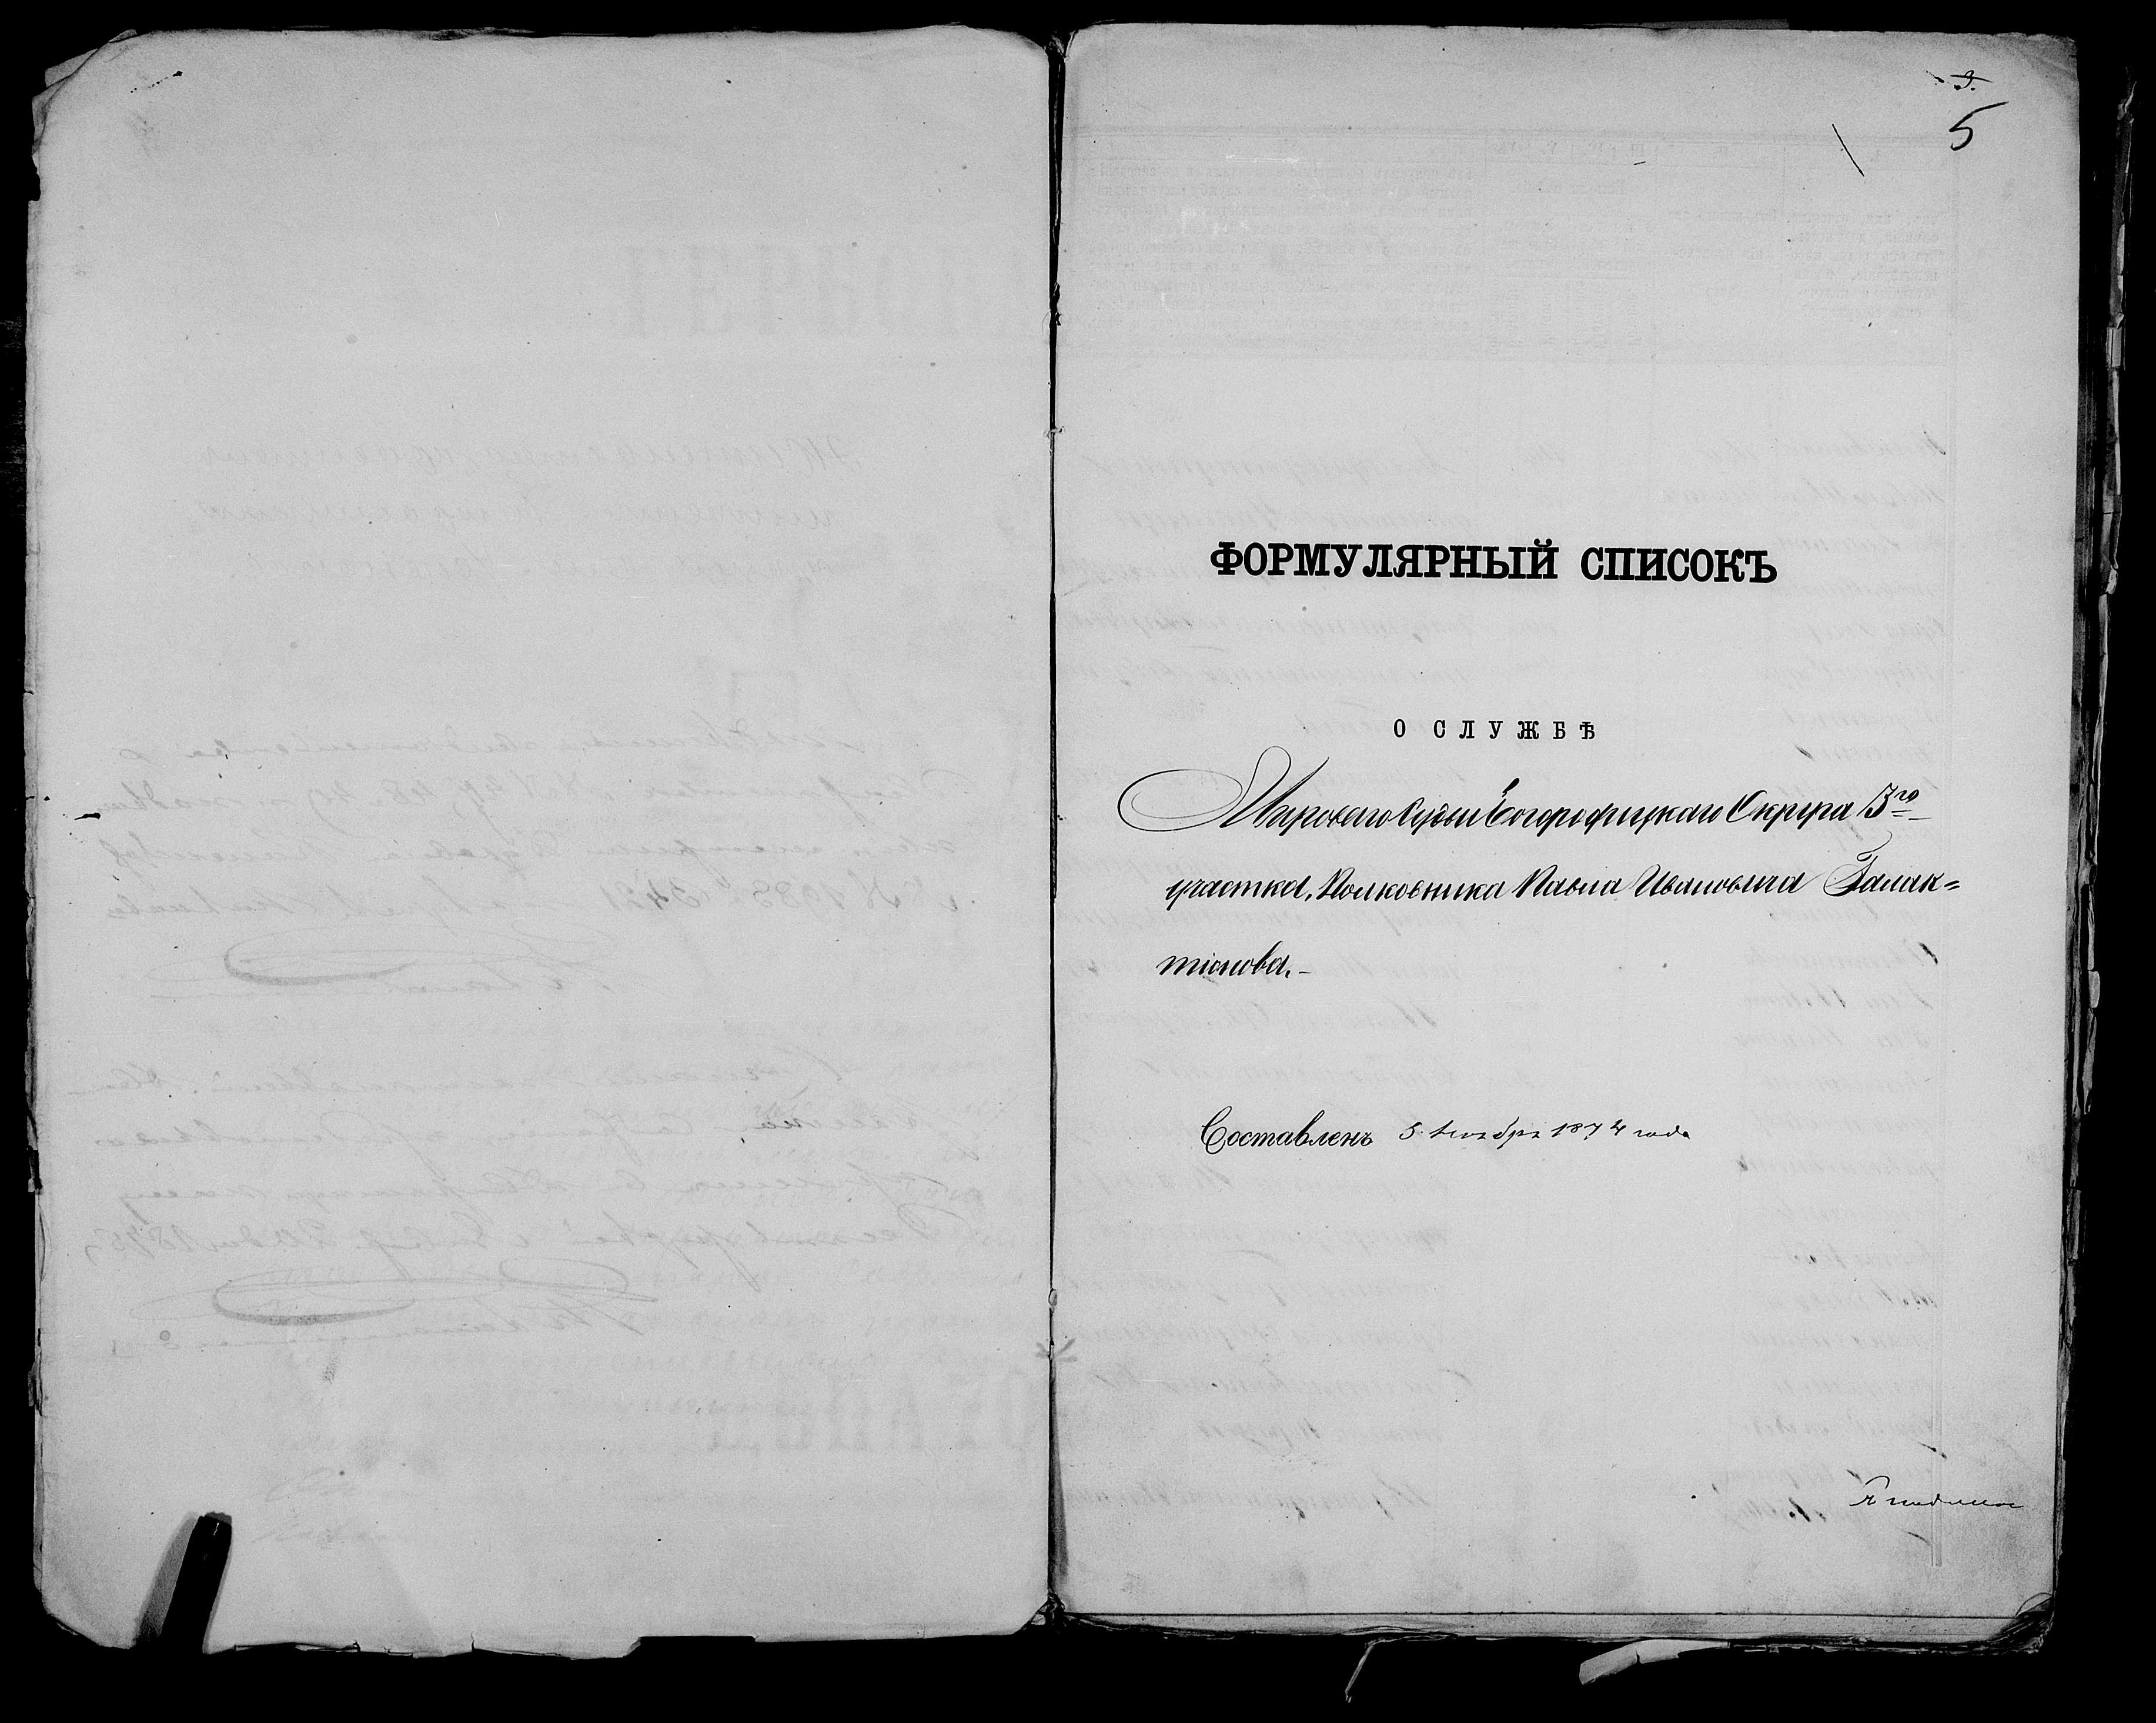 5
ФОРМУЛЯРНЫЙ СПИСОКЪ
О СЛУЖБѢ
Мироваго Судьи Богородицкаго Округа 3го
участка, Полковника Павла Ивановича Галак=
тіонова.
Составленъ 5 Ноября 1874 года